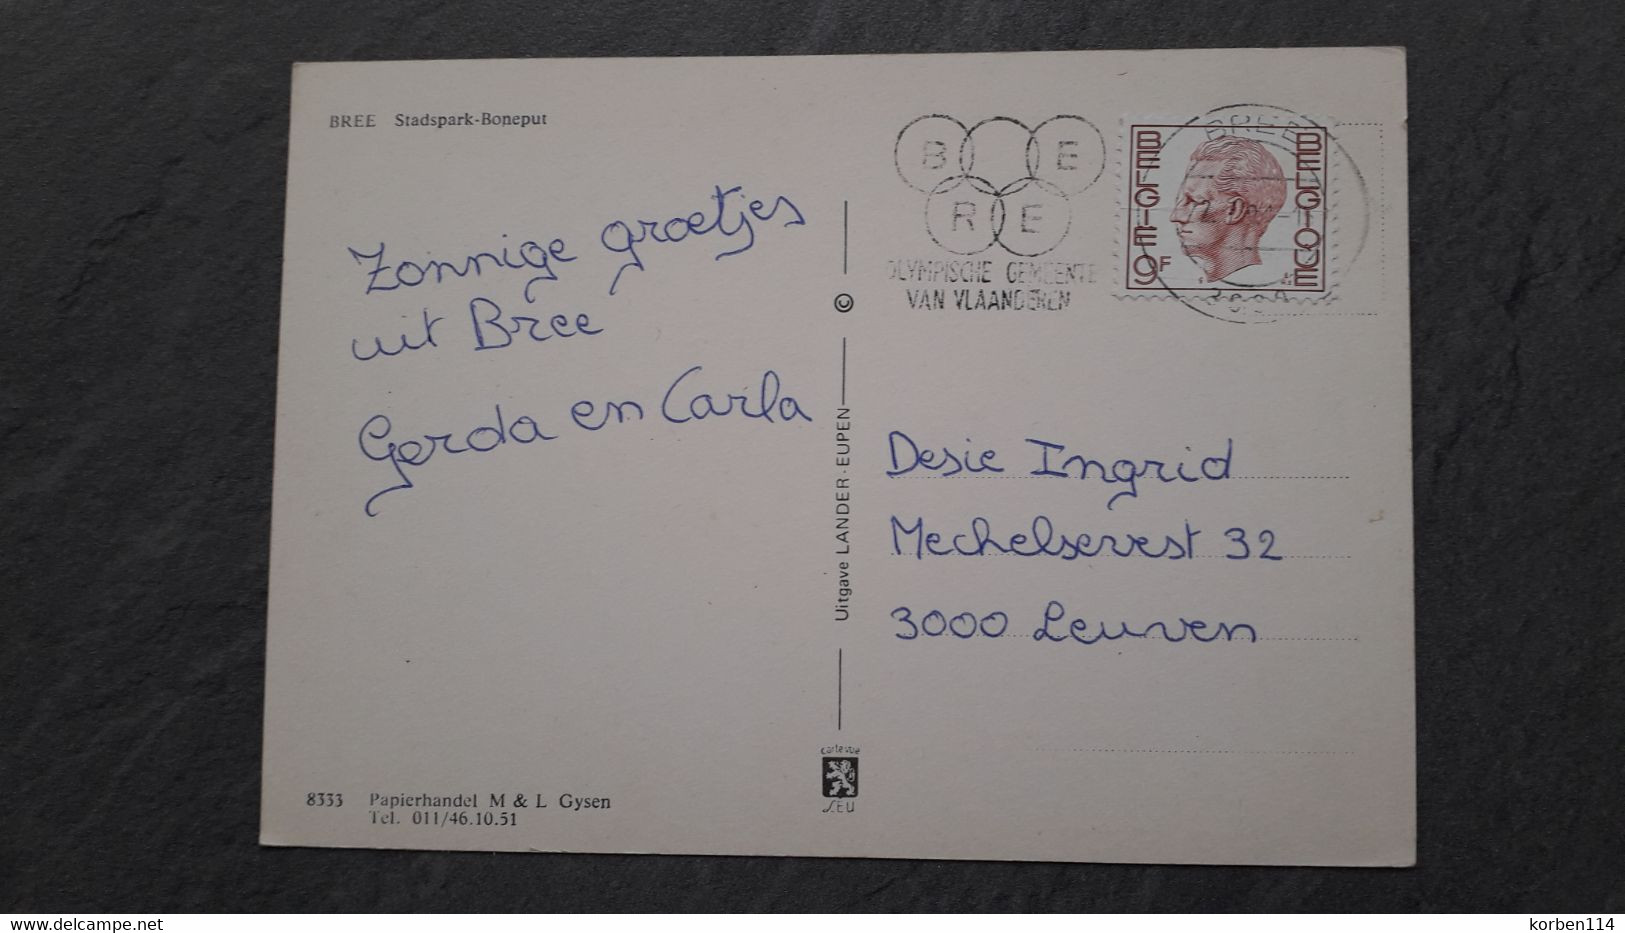 BREE Stadspark-Boneput
Zonnige groetjes
uit Bree
Gerda en Carla
8333 Papierhandel M & L Gysen
Tel. 011/46.10.51
©
Uitgave LANDER-EUPEN
carte vue
B E
R E
OLYMPISCHE GEMEENTE
VAN VLAANDEREN
BREE
BELGIE BELGIQUE
9F
Desie Ingrid
Mechelsevest 32
3000 Leuven
www.delcampe.net
korben114